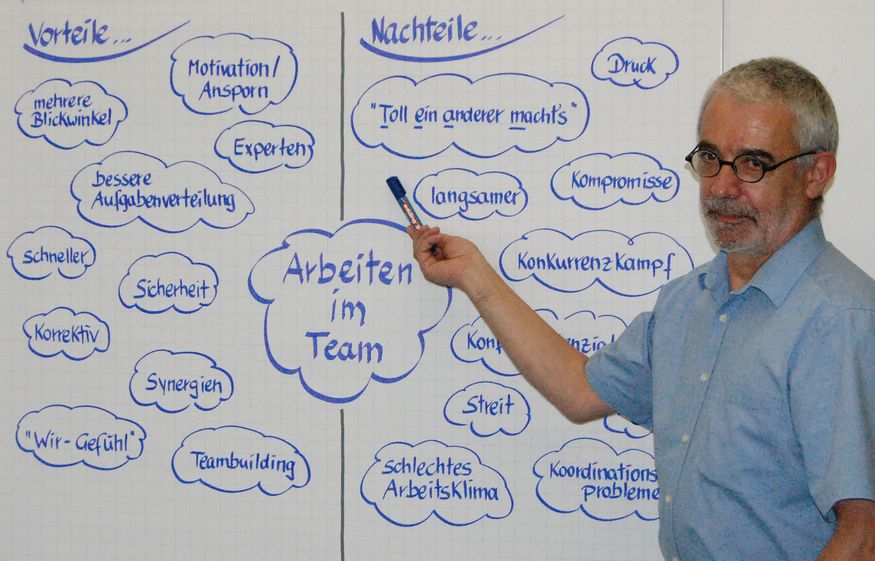 Vorteile...
Motivation/
Ansporn
mehrere
Blickwinkel
Experten
bessere
Aufgabenverteilung
schneller
Sicherheit
Korrektiv
Synergien
"Wir-Gefühl"
Teambuilding
Arbeiten
im
Team
Nachteile...
Druck
"Toll ein anderer macht's"
langsamer
Kompromisse
Konkurrenzkampf
Streit
schlechtes
Arbeitsklima
Koordinations
probleme